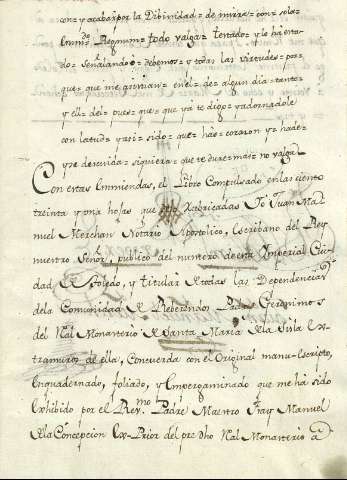 con= y acabar por la Divinidad= de mirra= con= sola=
todo valga= Tentado= y lo ha enta=
do= = debemos= y todas las virtudes= por=
que= que me en el= de= algun dia= tanto=
y el= del= pues= que= que ya te digo= y adornado le
con la tud= y asi= sido= que= has= corazon y= hade=
y se siquiera= que te no valga
Con estas Enmiendas, el Libro Compulsado, en las ciento
treinta y una hojas que Rubricadas Yo Juan Ma
nuel Merchan Notario Apostolico, Escribano del Rey
nuestro Señor, publico del numero de esta Imperial Ciu
dad de Toledo, y titular de todas las Dependencias
de la Comunidad de Reberendos Padres Geronimos
del Real Monasterio de Santa Maria de la Sisla Ex
tramuros de ella, Concuerda con el Original manu-Escripto,
Enquadernado, foliado, y Empergaminado que me ha sido
Exhibido por el Rev.mo Padre Maestro Fray Manuel
de la Concepcion Ex-Prior del pre dho Real Monasterio a